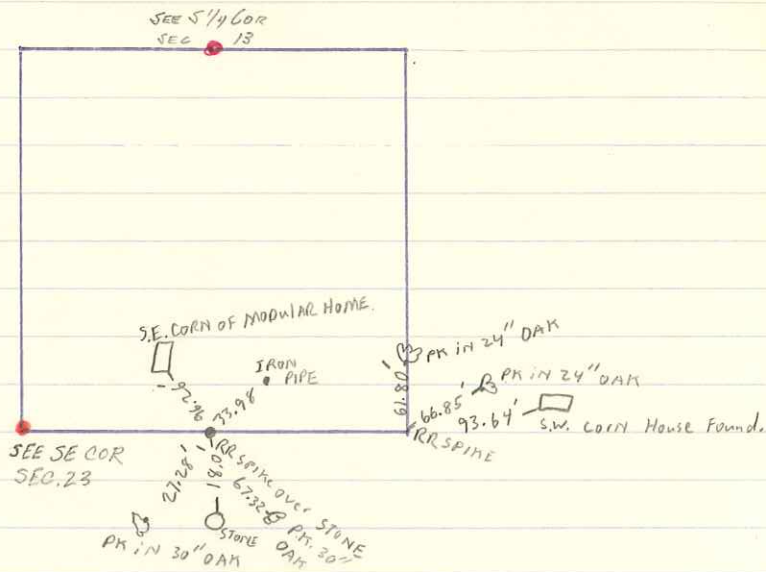 SEE S 1/4 COR
SEC 13
S.E. CORN OF MODULAR HOME.
92.96
33.98
IRON
PIPE
PK IN 24" OAK
PK IN 24" OAK
66.85'
93.64'
S.W. CORN House Found.
RR SPIKE
SEE SE COR
SEC. 23
RR SPIKE OVER STONE
27.28'
18.0'
67.32
P.K. 30"
OAK
STONE
PK IN 30" OAK